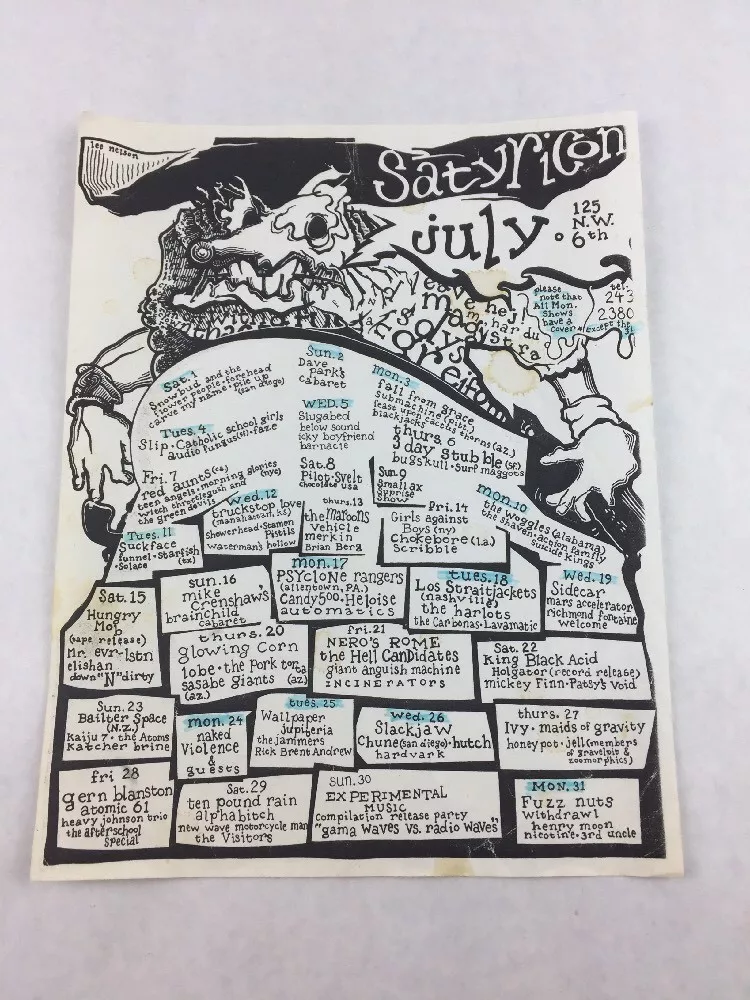 lee nelson
Satyricon
july
125
N.W.
6th
please
note that
All Mon.
shows
have a
cover
except the
31
tel.
243
2380
Sat. 1
Snowbud and the
flower people · forehead
carve my name · pile up
(san diego)
Sun. 2
Dave
park's
cabaret
Mon. 3
fall from grace
submachine (pitt.)
feast upon cactus thorns (az.)
blackjacks
Tues. 4
Slip · Catholic school girls
audio fungus · faze
WED. 5
Slugabed
below sound
icky boyfriend
barnacle
thurs. 6
3 day stubble (SF.)
bugskull · Surf maggots
Fri. 7
red aunts (ca)
teen angels · morning glories
(nyc)
witch throttlegush and
the green devils
Sat. 8
Pilot · Svelt
Chocolate USA
Sun 9
Small ax
Surprise
Show
mon. 10
the Woggles (alabama)
the shaven · action family
Suicide Kings
Tues. 11
Suckface
funnel · Starfish
(tx)
· Solace
Wed. 12
truckstop love
(manahattan, KS)
Showerhead · Stamen
Pistils
waterman's hollow
thurs. 13
the Maroons
Vehicle
merkin
Brian Berg
Fri. 14
Girls against
Boys (ny)
Chokebore (l.a.)
Scribble
Sat. 15
Hungry
Mob
(tape release)
Mr. evr-lstn
elishan
down "N" dirty
sun. 16
mike
Crenshaw's
brainchild
cabaret
mon. 17
PSYCLONE rangers
(allentown, PA.)
Candy500 · Heloise
automatics
tues. 18
Los Straitjackets
(nashville)
the harlots
the Carbonas · Lavamatic
Wed. 19
Sidecar
mars accelerator
richmond fontaine
welcome
thurs. 20
glowing Corn
lobe · the Pork torta
sasabe giants (az)
(az.)
fri. 21
NERO'S ROME
the Hell CanDidates
giant anguish machine
INCINERATORS
Sat. 22
King Black Acid
Holgator (record release)
mickey Finn · Patsy's Void
Sun. 23
Bailter Space
(N.Z.)
Kaiju 7 · the Atoms
Katcher brine
mon. 24
naked
Violence
&
guests
tues. 25
Wallpaper
jupiteria
the jammers
Rick Brent Andrew
Wed. 26
Slackjaw
Chune (san diego) · hutch
hardvark
thurs. 27
Ivy · maids of gravity
honey pot · jell (members
of gravelpit &
zoomorphics)
fri 28
gern blanston
atomic 61
heavy johnson trio
the afterschool
Special
Sat. 29
ten pound rain
alphabitch
new wave motorcycle man
the Visitors
sun. 30
EXPERIMENTAL
MUSIC
compilation release party
"gama Waves vs. radio Waves"
MON. 31
Fuzz nuts
Withdrawl
henry moon
nicotine · 3rd uncle